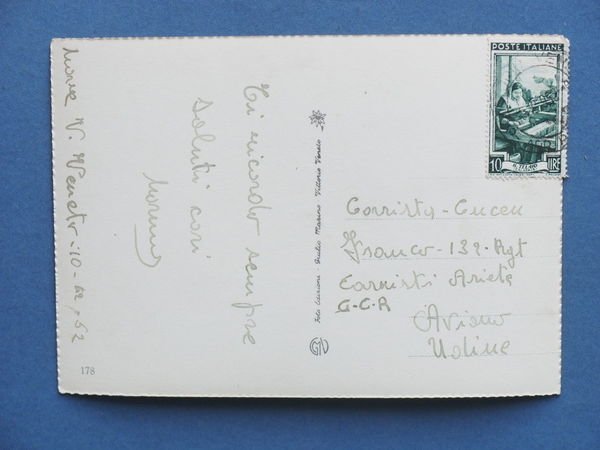 POSTE ITALIANE
10 LIRE
Ti ricordo sempre
saluti cari
V. Veneto - 10-
52
Foto Edizioni - Giulio Marino Vittorio Veneto
Carrista -
Franco - 132 - Rgt
Carristi Ariete
G-C-R
Aviano
Udine
178